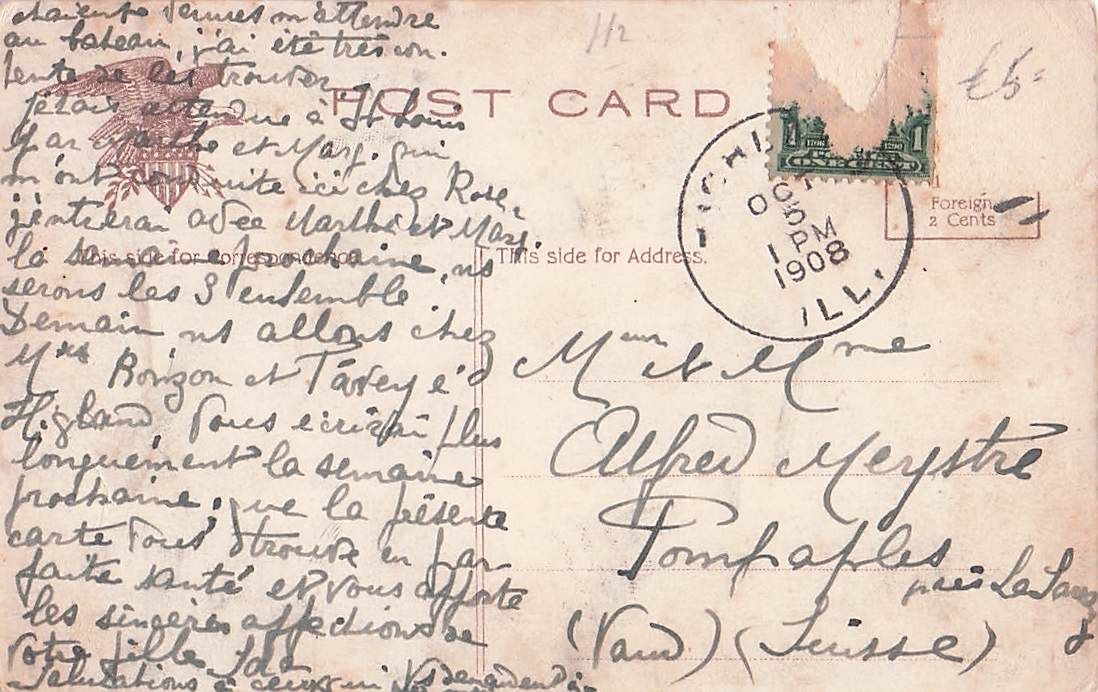 étaient venues m'attendre
au bateau, j'ai été très con-
tente de les trouver
j'étais attendue à St Louis
par Marthe et Marg. qui
m'ont conduite ici chez Rose,
j'entrerai avec Marthe et Marg.
la semaine prochaine, ns
serons les 3 ensemble.
Demain ns allons chez
et Tavey à
Higland Vous écrirai plus
longuement la semaine
prochaine, que la présente
carte vous trouve en par-
faite santé et vous apporte
les sincères affections de
votre fille
Salutations à ceux qui Vs demandent
POST CARD
This side for correspondence.
This side for Address.
Foreign
2 Cents
1/2
£5-
1 1
ONE CENT
CHI
OCT
5 PM
1
1908
ILL.
Meur et Mme
Alfred Meystre
Pompaples
près La Sarraz
(Vaud) (Suisse)